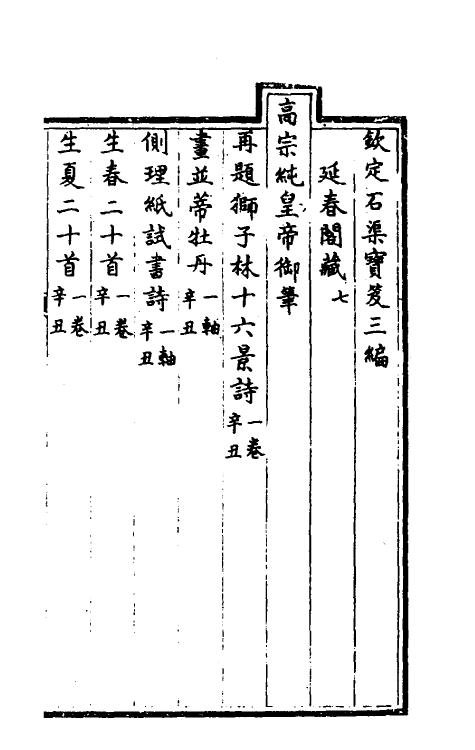 欽定石渠寶笈三編
延春閣藏七
高宗純皇帝御筆
再題獅子林十六景詩一卷辛丑
畫並蒂牡丹一軸辛丑
側理紙試書詩一軸辛丑
生春二十首一卷辛丑
生夏二十首一卷辛丑